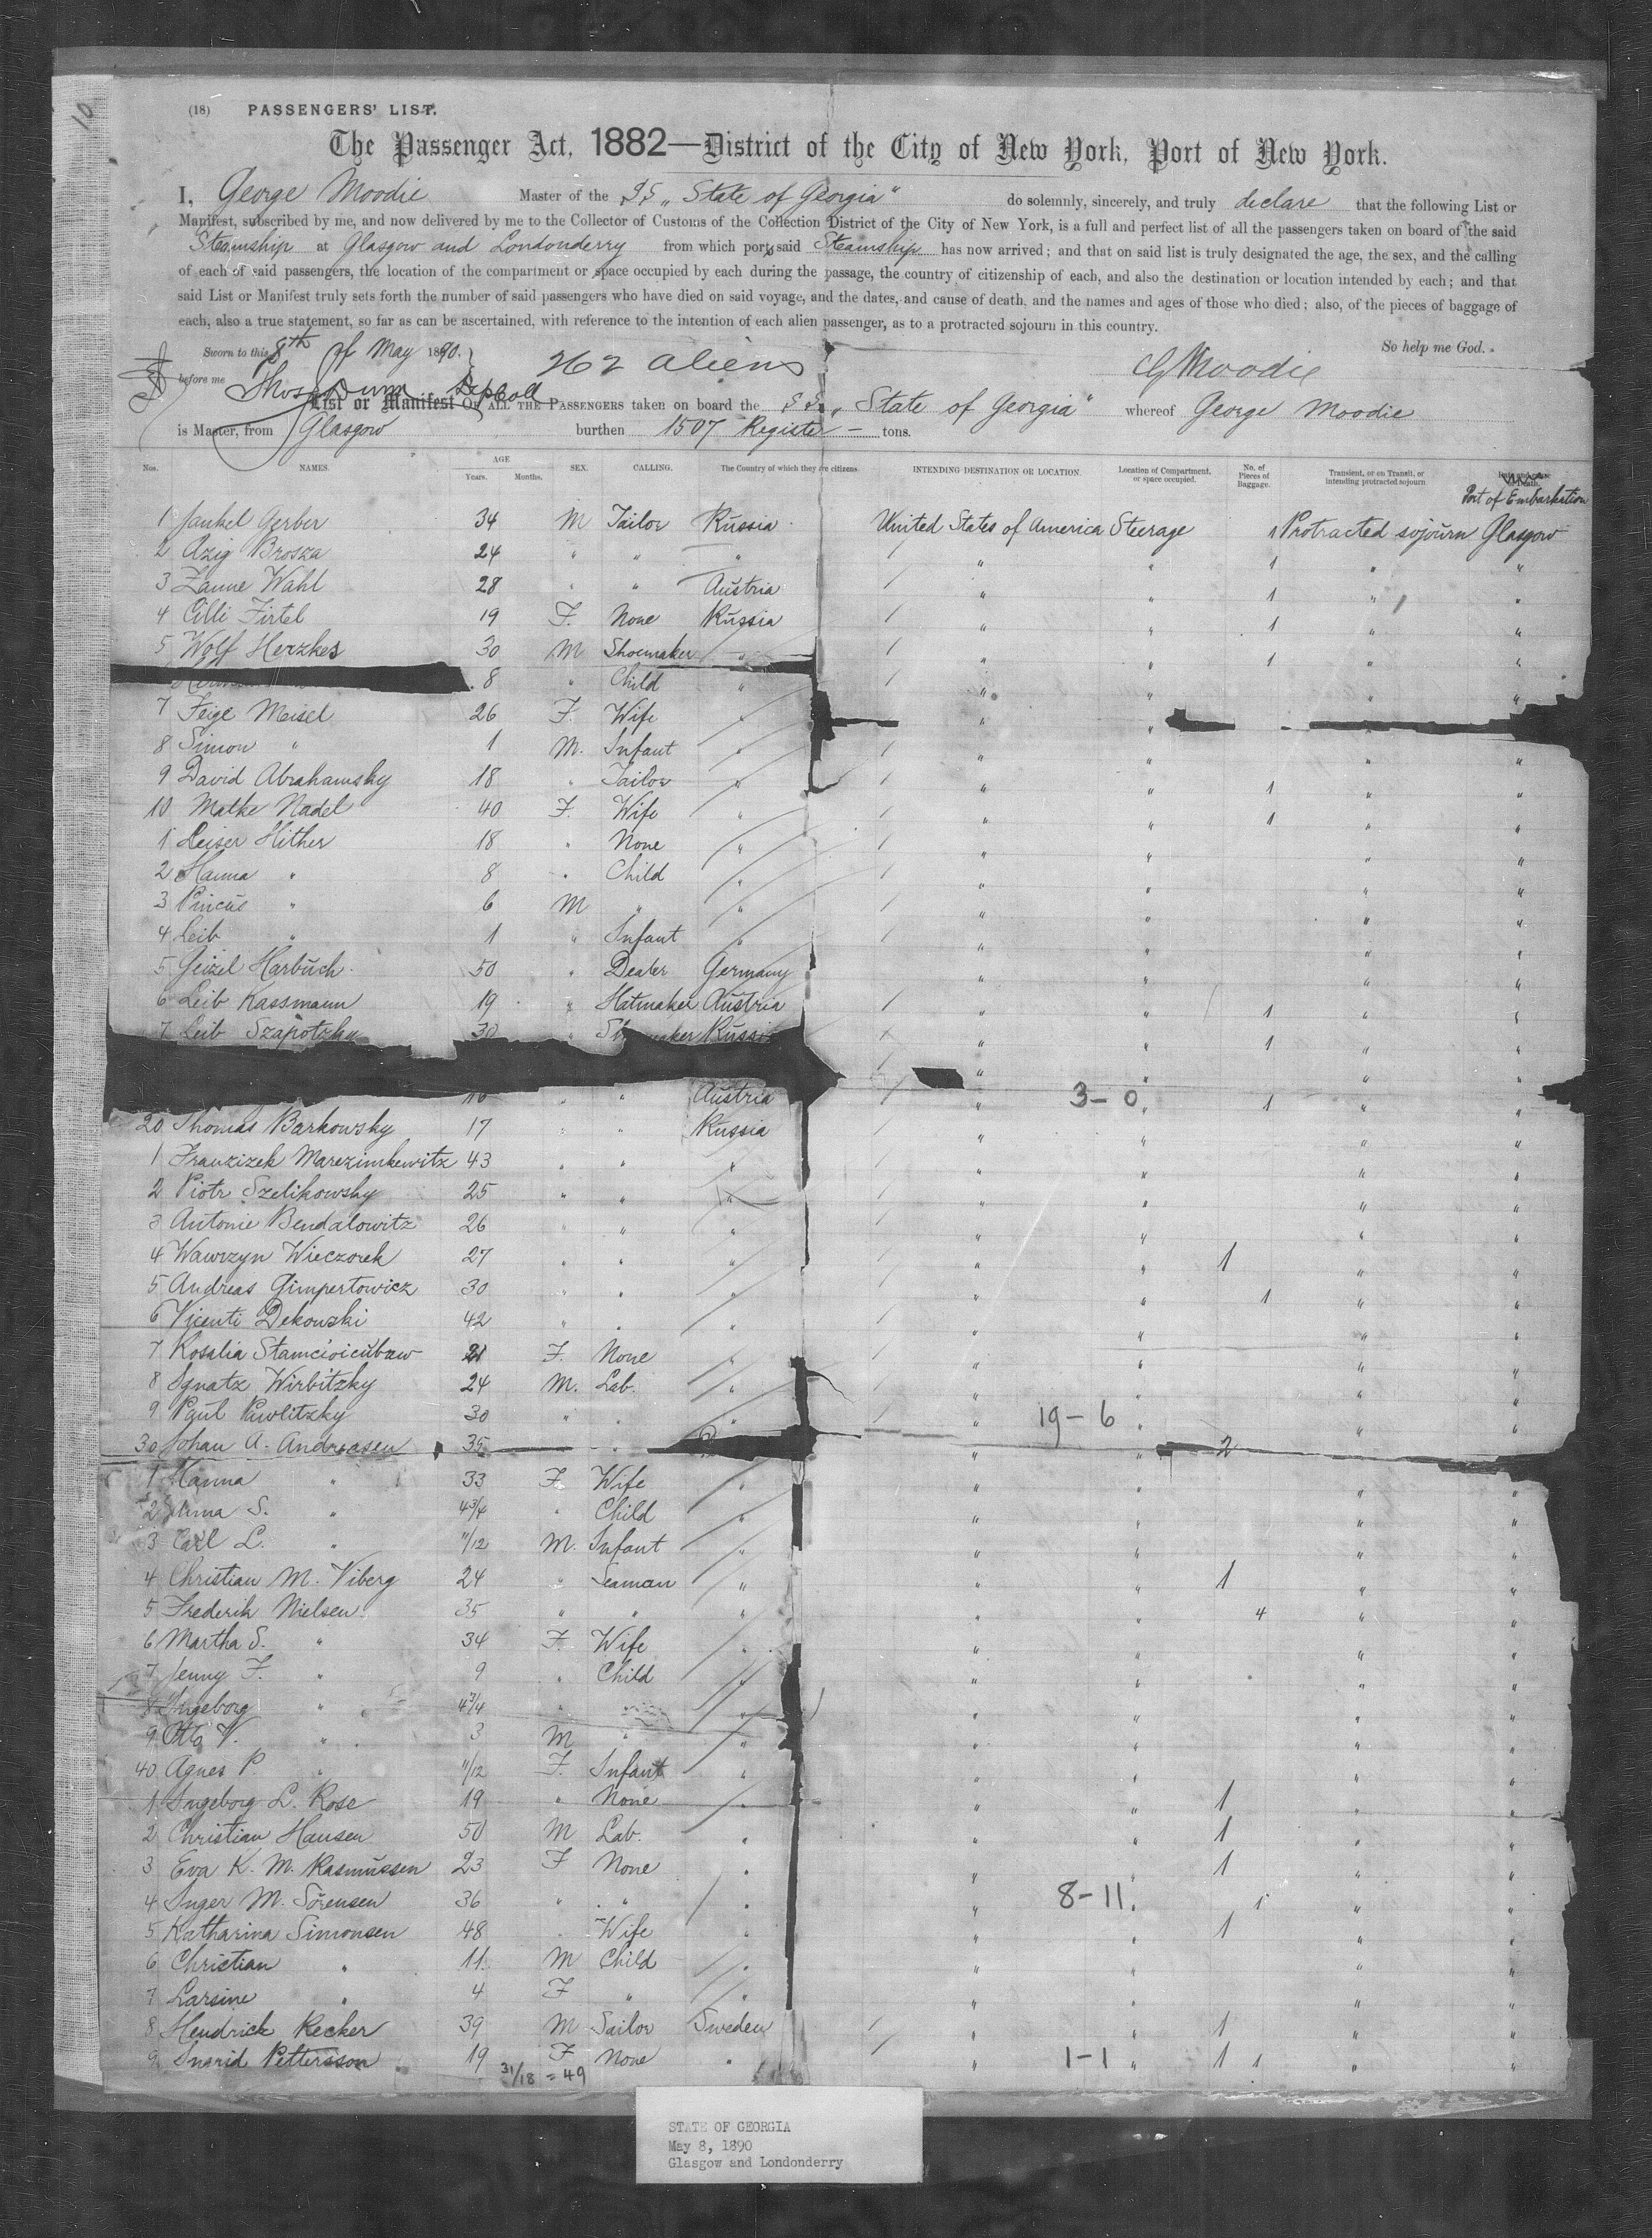 10
(18) PASSENGERS' LIST.
The Passenger Act, 1882—District of the City of New York, Port of New York.
I, George Moodie Master of the S.S. „State of Georgia" do solemnly, sincerely, and truly declare that the following List or
Manifest, subscribed by me, and now delivered by me to the Collector of Customs of the Collection District of the City of New York, is a full and perfect list of all the passengers taken on board of the said
Steamship at Glasgow and Londonderry from which port said Steamship has now arrived; and that on said list is truly designated the age, the sex, and the calling
of each of said passengers, the location of the compartment or space occupied by each during the passage, the country of citizenship of each, and also the destination or location intended by each; and that
said List or Manifest truly sets forth the number of said passengers who have died on said voyage, and the dates, and cause of death, and the names and ages of those who died; also, of the pieces of baggage of
each, also a true statement, so far as can be ascertained, with reference to the intention of each alien passenger, as to a protracted sojourn in this country.
Sworn to this 8th of May 1890. So help me God.
262 aliens G Moodie
before me Thos Dunn Dep Coll
List or Manifest OF ALL THE PASSENGERS taken on board the S.S. „State of Georgia" whereof George Moodie
is Master, from Glasgow burthen 1507 Register — tons.
Nos. NAMES. AGE Years. Months. SEX. CALLING. The Country of which they are citizens. INTENDING DESTINATION OR LOCATION. Location of Compartment, or space occupied. No. of Pieces of Baggage. Transient, or on Transit, or intending protracted sojourn
Port of Embarkation
1 Jankel Gerber 34 M Tailor Russia United States of America Steerage 1 Protracted sojourn Glasgow
2 Azig Brosza 24 " " " / " " 1 " "
3 Zanne Wahl 28 " " Austria / " " 1 " "
4 Cilli Firtel 19 F. None Russia / " " 1 " "
5 Wolf Herzkes 30 M Shoemaker " / " " 1 " "
8 " Child " / " " " "
7 Feige Meisel 26 F. Wife " " " "
8 Simon " 1 M. Infant " / " " " "
9 David Abrahamsky 18 " Tailor " / " " 1 " "
10 Malke Nadel 40 F. Wife " / " " 1 " "
1 Leiser Hither 18 " None " / " " " "
2 Hanna " 8 " Child " / " " " "
3 Pincus " 6 M " " / " " " "
4 Leib " 1 " Infant " / " " " "
5 Geizel Harbuch 50 " Dealer Germany " " " "
6 Leib Kassmann 19 " Hatmaker Austria / " " 1 " "
7 Leib Szapotzky 30 " Shoemaker Russia / " " 1 " "
/ " " " "
Austria / " 3-0 " 1 " "
20 Thomas Barkowsky 17 " " Russia / " " " "
1 Franzizek Marezinkewitz 43 " " " / " " " "
2 Piotr Szelikowsky 25 " " " / " " " "
3 Antonie Bendalowitz 26 " " " / " " " "
4 Wawrzyn Wieczorek 27 " " " / " " 1 " "
5 Andreas Gimpertowicz 30 " " " / " " 1 " "
6 Vicenti Dekowski 42 " " " / " " " "
7 Rosalia Stamcioicubaw 21 F. None " / " " " "
8 Ignatz Wirbitzky 24 M. Lab. " / " " " "
9 Paul Pawlitzky 30 " " " / " 19-6 " " "
30 Johan A. Andreasen 35 " " 2
1 Hanna " 33 F. Wife " " " " "
2 Anna S. " 4 3/4 " Child " " " " "
3 Carl L. " 11/12 M. Infant " " " " "
4 Christian M. Viberg 24 " Seaman " " " 1 " "
5 Frederik Nielsen 35 " " " " " 4 " "
6 Martha S. " 34 F. Wife " " " " "
7 Jenny F. " 9 " Child " " " " "
8 Ingeborg " 4 3/4 " " " " " " "
9 Otto V. " 3 M " " " " " "
40 Agnes P. " 11/12 F. Infant " " " " "
1 Ingeborg L. Rose 19 " None " " " 1 " "
2 Christian Hansen 50 M Lab. " " " 1 " "
3 Eva K. M. Rasmussen 23 F None " " " 1 " "
4 Inger M. Sörensen 36 " " " " 8-11 " 1 " "
5 Katharina Simonsen 48 " Wife " " " 1 " "
6 Christian " 11 M Child " " " " "
7 Larsine " 4 F " " " " " "
8 Hendrick Recker 39 M Sailor Sweden / " " 1 " "
9 Ingrid Pettersson 19 F None " / " 1-1 " 1 1 " "
31/18 = 49
STATE OF GEORGIA
May 8, 1890
Glasgow and Londonderry